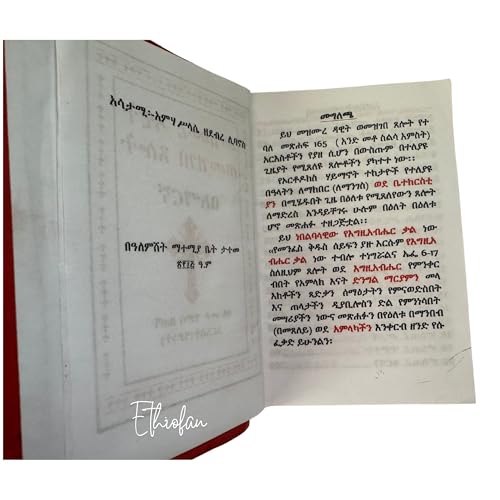 አሳታሚ፦አምሃ ሥላሴ ዘደብረ ሊባኖስ
በዓለምሸት ማተሚያ ቤት ታተመ
ዓ.ም
መግለጫ
ይህ መዝሙረ ዳዊት ወመዝገበ ጸሎት የተ
ባለ መጽሐፍ 165 ( አንድ መቶ ስልሳ አምስት)
አርእስቶችን የያዘ ሲሆን በውስጡም በተለያዩ
ጊዜያት የሚጸለዩ ጸሎቶችን ያካተተ ነው።
የኦርቶዶክስ ሃይማኖት ተከታዮች የተለያዩ
በዓላትን ለማክበር (ለማንገስ) ወደ ቤተክርስቲ
ያን በሚሄዱበት ጊዜ በዕለቱ የሚጸለየውን ጸሎት
ለማድረስ እንዳይቸገሩ ሁሉም በዕለት በዕለቱ
ሆኖ መጽሐፉ ተዘጋጅቷል።
ይህ ነበልባላዊው የእግዚአብሔር ቃል ነው
የመንፈስ ቅዱስ ሰይፍን ያዙ እርሱም የእግዚአ
ብሔር ቃል ነው ተብሎ ተነግሯልና ኤፌ 6-17
ስለዚህም ጸሎት ወደ እግዚአብሔር የምንቀር
ብበት የአምላክ እናት ድንግል ማርያምን መላ
እክቶችን ጻድቃን ሰማዕታትን የምናወድስበት
እና ጠላታችን ዲያቢሎስን ድል የምንነሳበት
መሣሪያችን ነውና መጽሐፉን በየዕለቱ በማንበብ
(በመጸለይ) ወደ አምላካችን እንቀርብ ዘንድ የሱ
ፈቃድ ይሁንልን።
Ethiofan